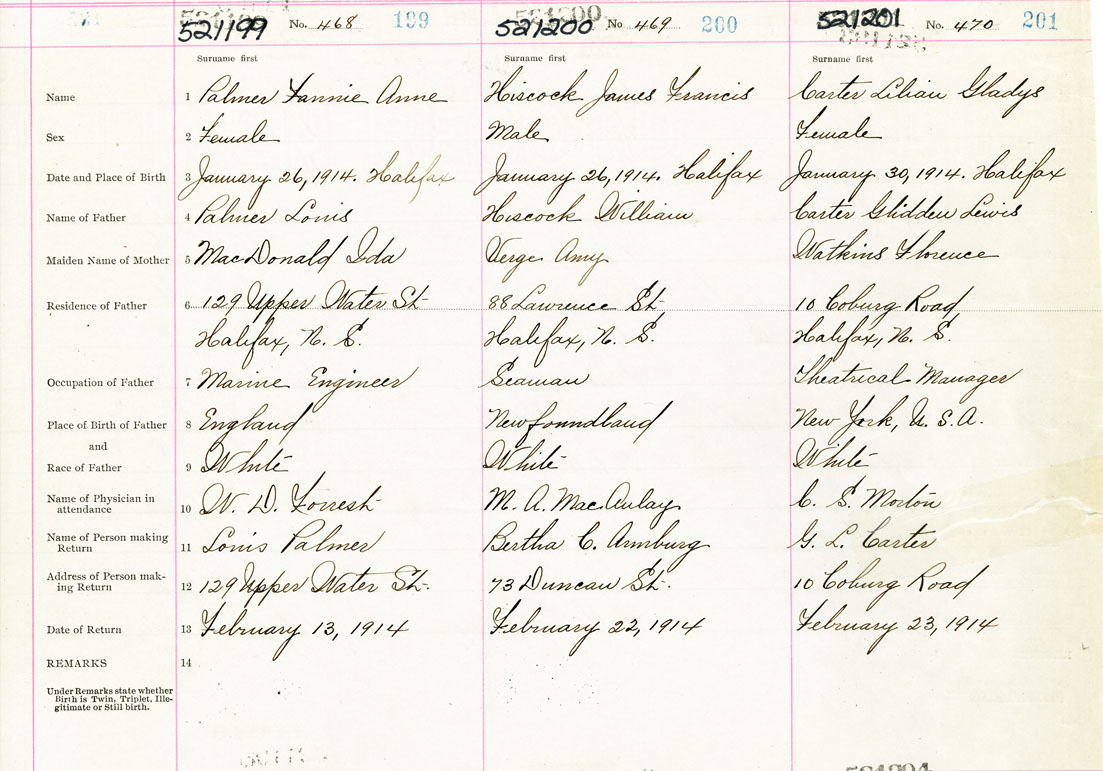 521199 No. 468 199 521200 No. 469 200 521201 No. 470 201
Surname first Surname first Surname first
Name 1 Palmer Fannie Anne Hiscock James Francis Carter Lilian Gladys
Sex 2 Female Male Female
Date and Place of Birth 3 January 26, 1914. Halifax January 26, 1914. Halifax January 30, 1914. Halifax
Name of Father 4 Palmer Louis Hiscock William Carter Glidden Lewis
Maiden Name of Mother 5 MacDonald Ida Verge Amy Watkins Florence
Residence of Father 6 129 Upper Water St. 88 Lawrence St. 10 Coburg Road,
Halifax, N. S. Halifax, N. S. Halifax, N. S.
Occupation of Father 7 Marine Engineer Seaman Theatrical Manager
Place of Birth of Father 8 England Newfoundland New York, U. S. A.
and
Race of Father 9 White White White
Name of Physician in
attendance 10 W. D. Forrest M. A. MacAulay C. S. Morton
Name of Person making
Return 11 Louis Palmer Bertha C. Armburg G. L. Carter
Address of Person mak-
ing Return 12 129 Upper Water St. 73 Duncan St. 10 Coburg Road
Date of Return 13 February 13, 1914 February 22, 1914 February 23, 1914
REMARKS 14
Under Remarks state whether
Birth is Twin, Triplet, Ille-
gitimate or Still birth.